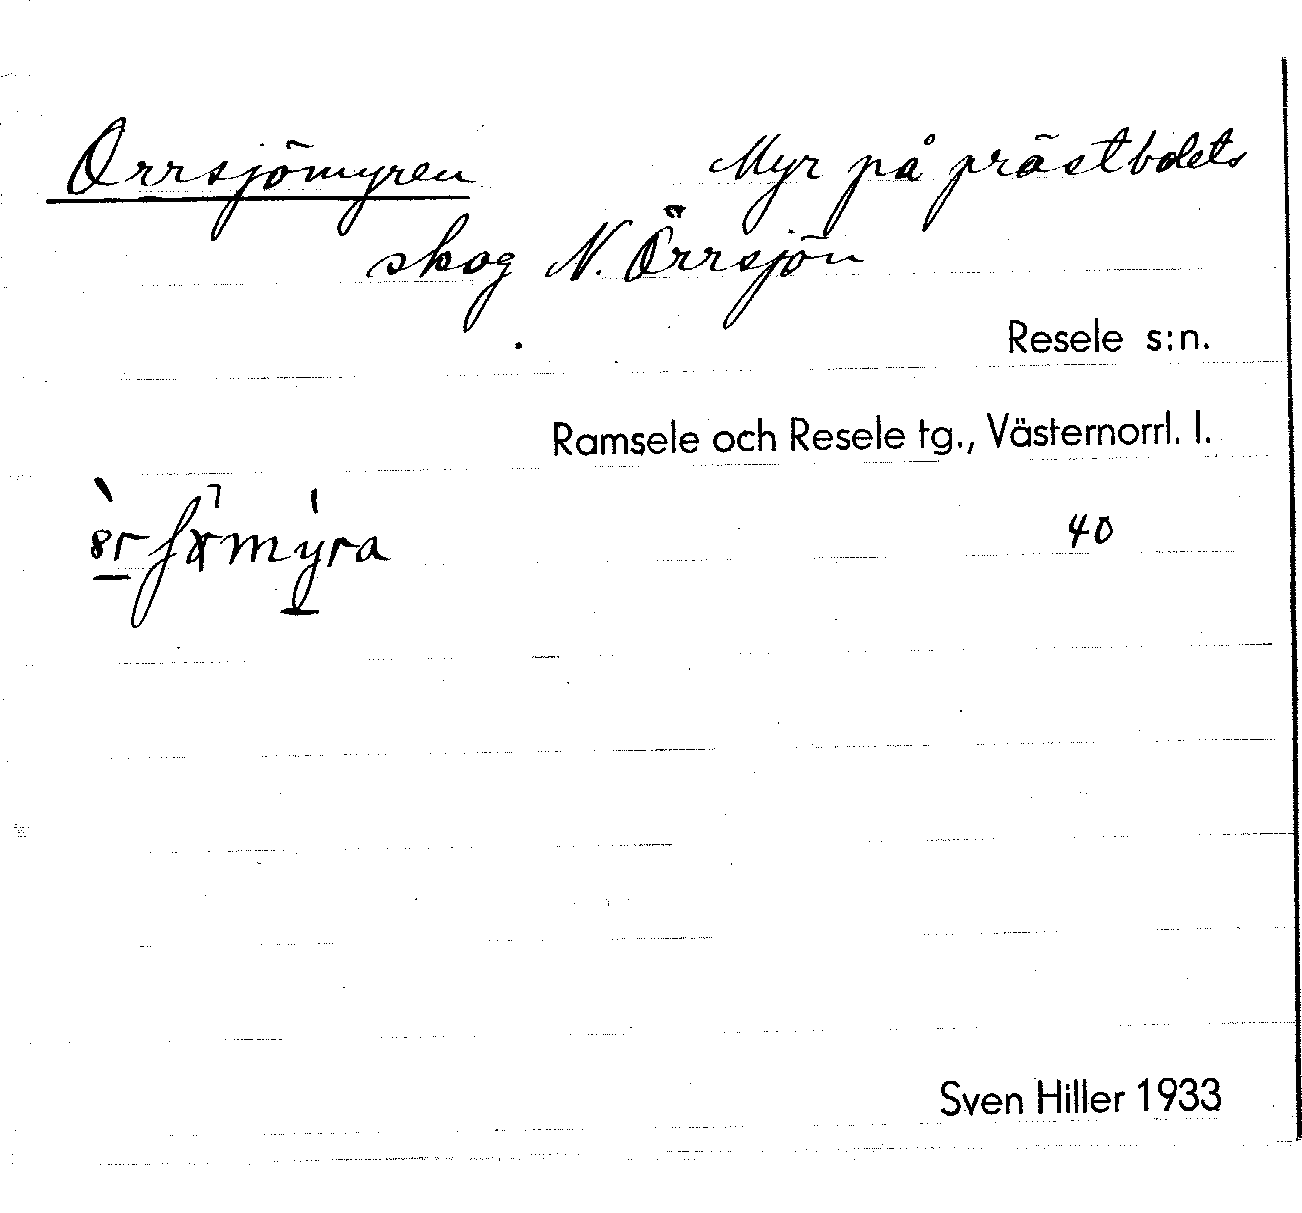 Orrsjömyren Myr på prästbolets
skog N. Örrsjön
Resele s:n.
Ramsele och Resele tg., Västernorrl. l.
40
Sven Hiller 1933